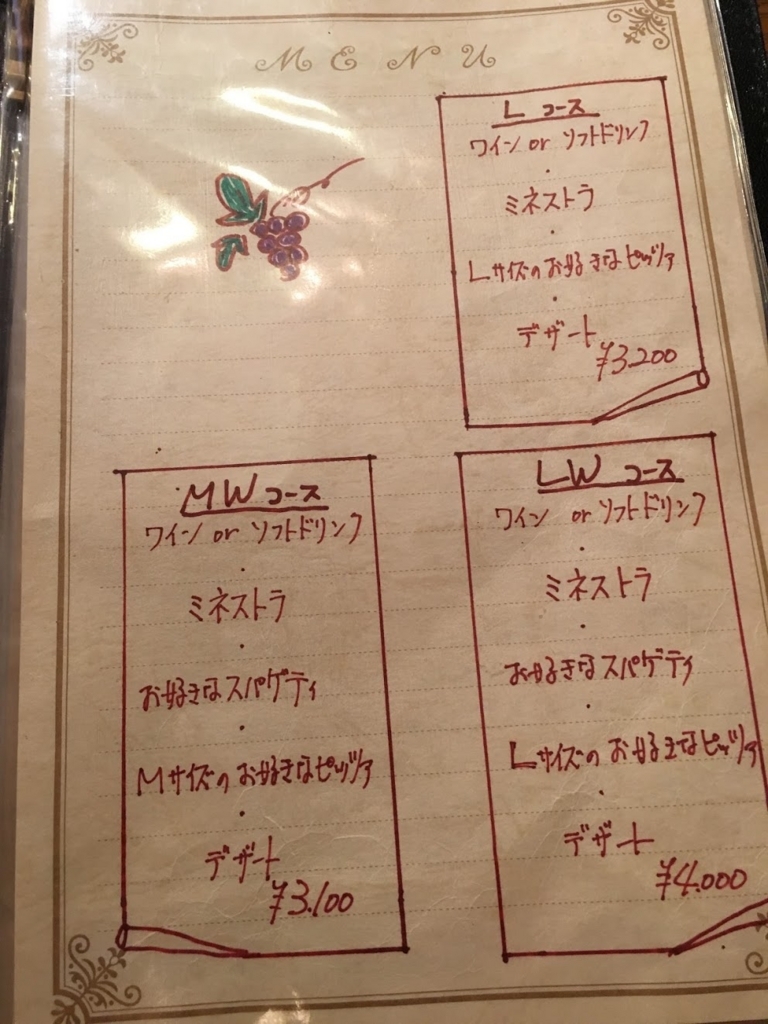 MENU
L コース
ワイン or ソフトドリンク
・
ミネストラ
・
Lサイズのお好きなピッツァ
・
デザート
¥3.200
MW コース
ワイン or ソフトドリンク
・
ミネストラ
・
お好きなスパゲティ
・
Mサイズのお好きなピッツァ
・
デザート
¥3.100
LW コース
ワイン or ソフトドリンク
・
ミネストラ
・
お好きなスパゲティ
・
Lサイズのお好きなピッツァ
・
デザート
¥4.000